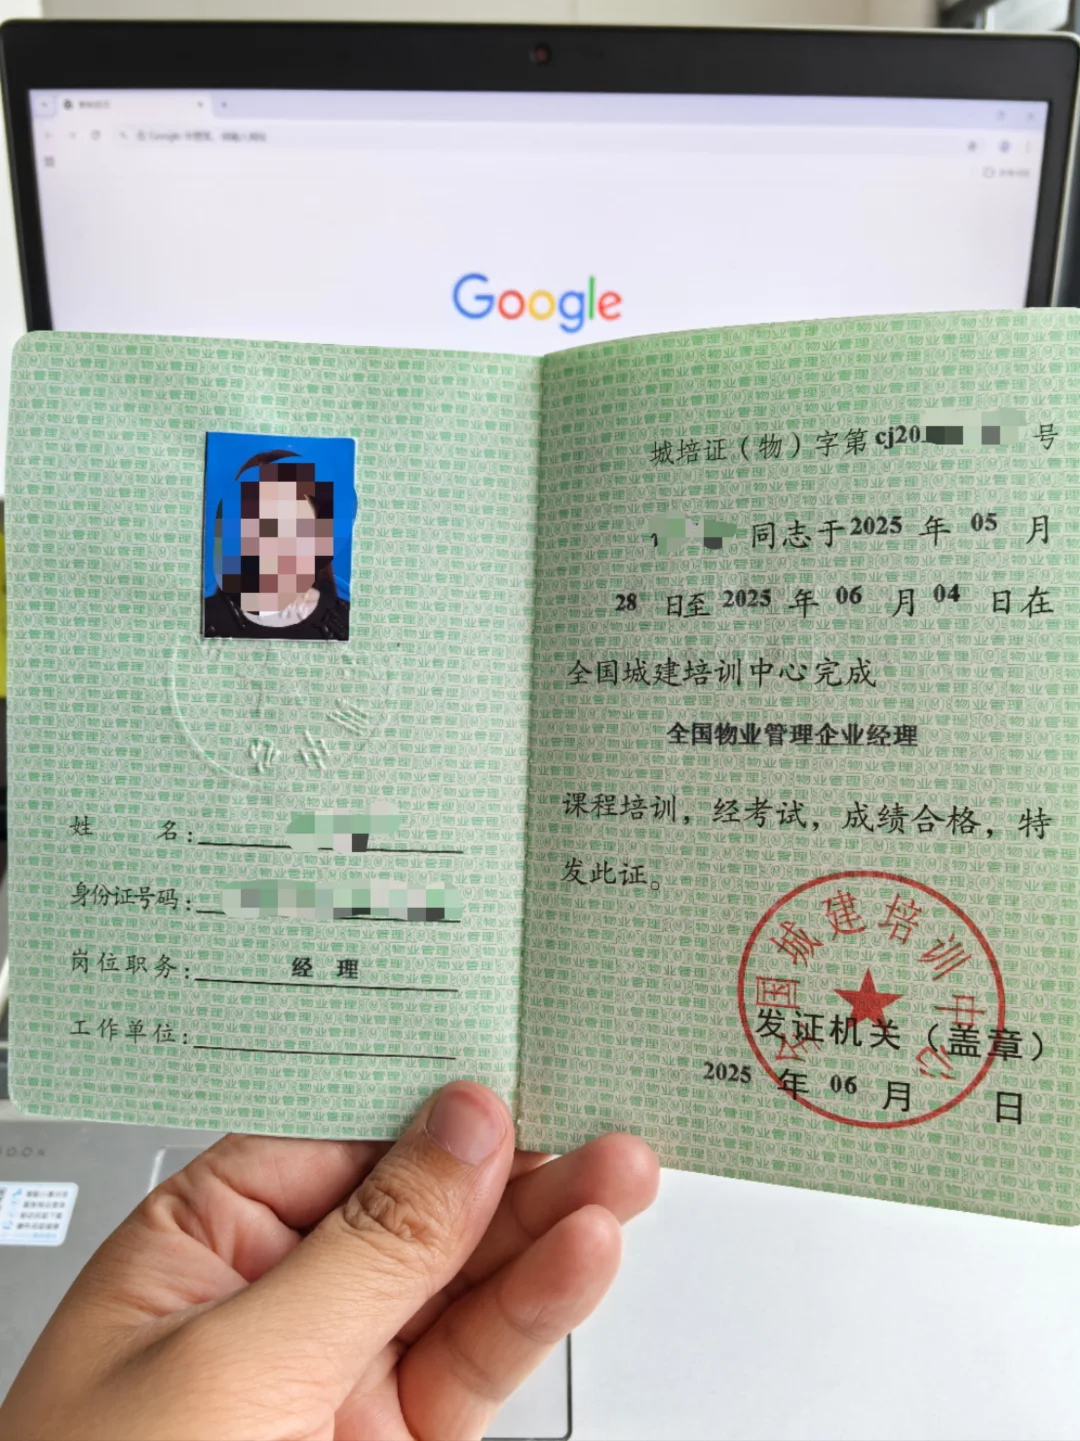 Google
姓 名：
身份证号码：
岗位职务： 经 理
工作单位：
城培证（物）字第cj20 号
同志于2025 年 05 月
28 日至 2025 年 06 月 04 日在
全国城建培训中心完成
全国物业管理企业经理
课程培训，经考试，成绩合格，特
发此证。
全国城建培训中心
发证机关（盖章）
2025 年 06 月 日